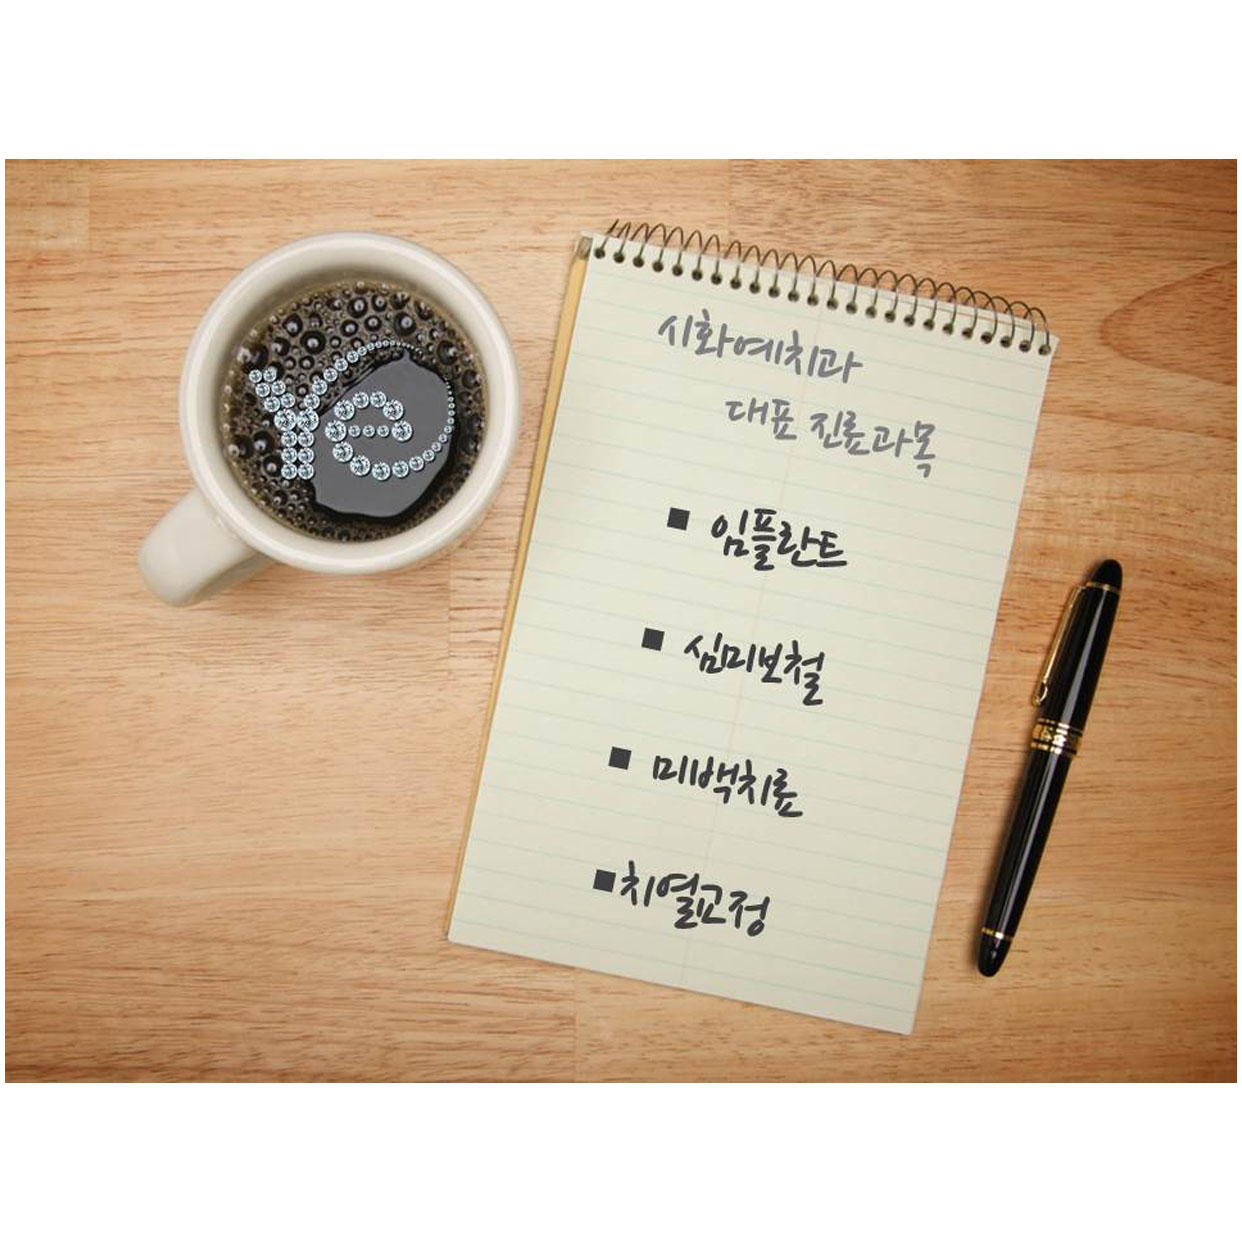 Ye
시화예치과
대표 진료과목
■ 임플란트
■ 심미보철
■ 미백치료
■ 치열교정